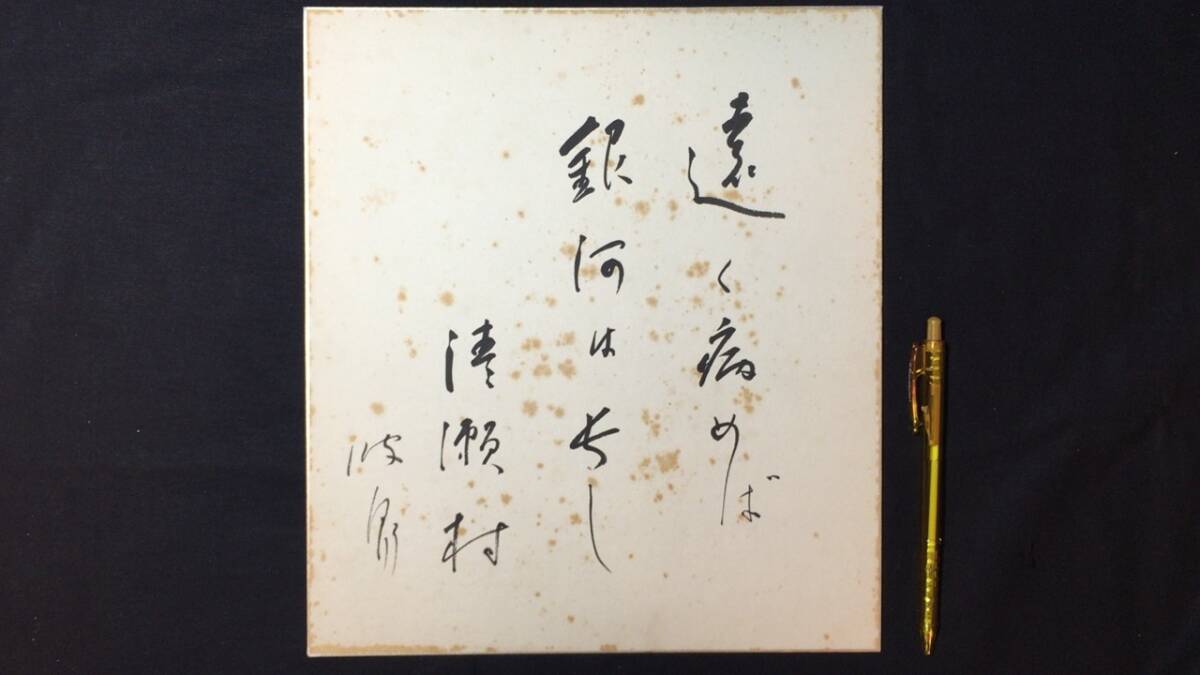 遠く病めば
銀河は長し
清瀬村
波郷